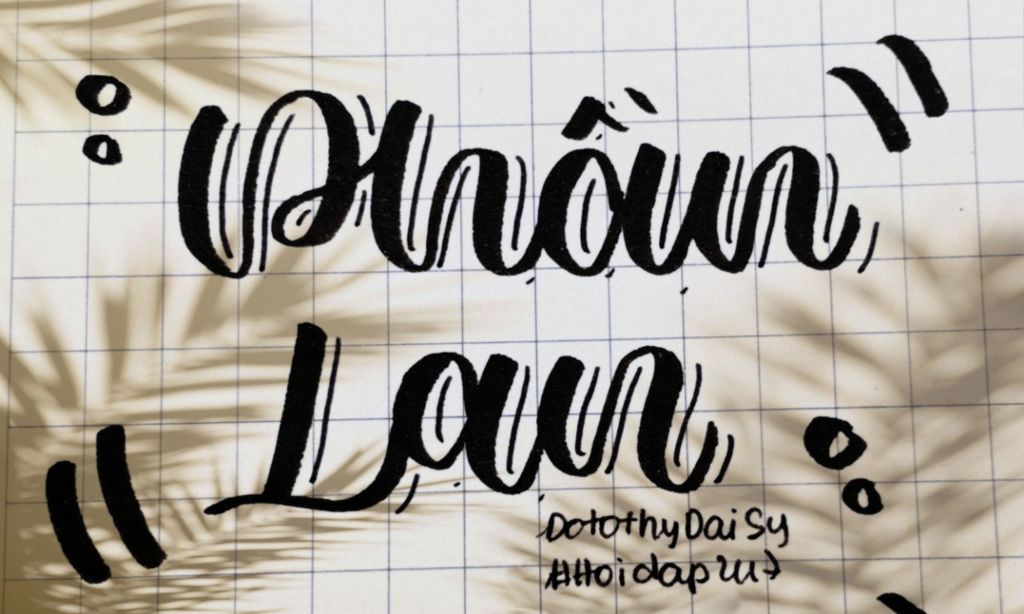 Phần
Lan
DorothyDaiSy
#Hoidap247